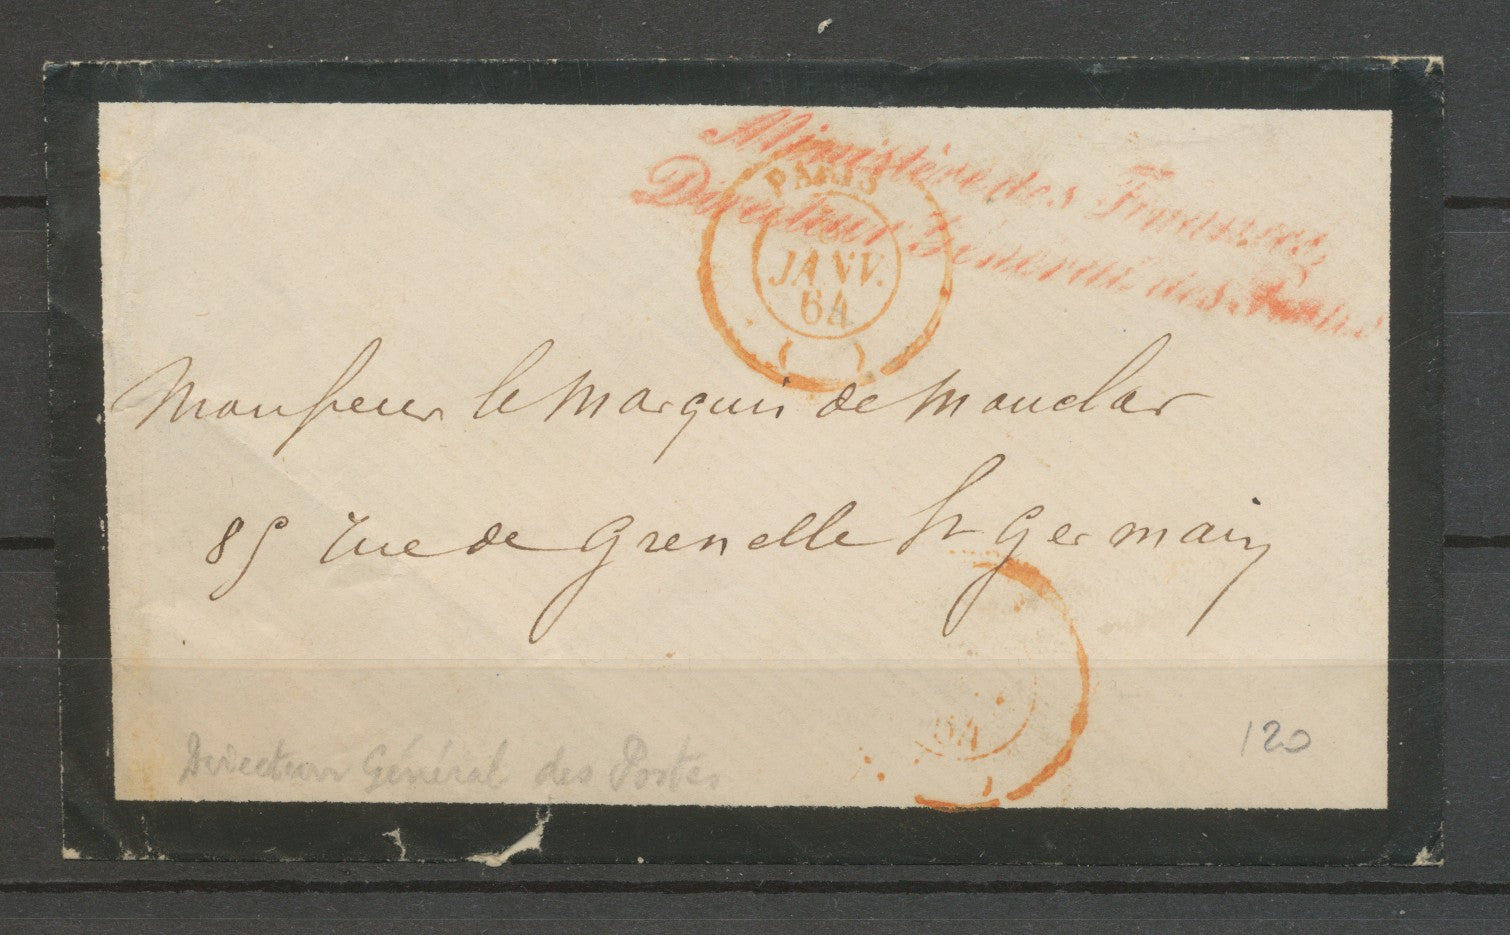 Ministère des Finances,
Directeur Général des Postes
PARIS
JANV.
64
( )
Monsieur le Marquis de Mauclar
85 rue de Grenelle St Germain
64
Directeur Général des Postes
120